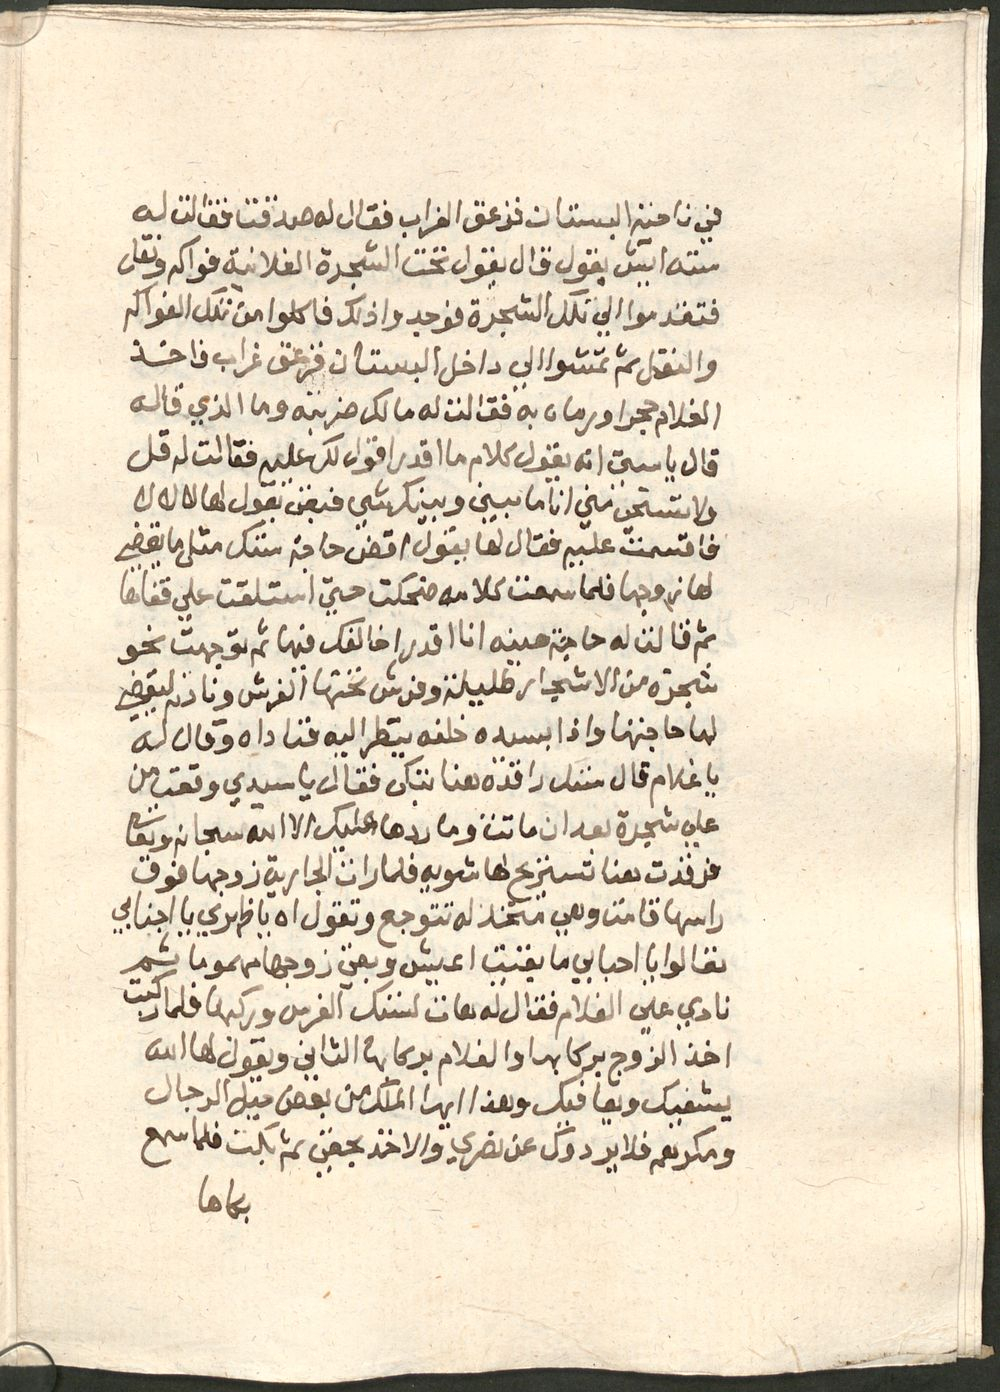 في ناحية البستان فزعق الغراب فقال له صدقت فقالت له
سته ايش يقول قال يقول تحت الشجرة الفلانية فواكه ونقل
فتقدموا الي تلك الشجرة فوجدوا ذلك فاكلوا من تلك الفواكه
والنقل ثم تمشوا الي داخل البستان فزعق غراب فاخذ
الغلام حجرا ورماه به فقالت له مالك ضربته وما الذي قاله
قال يا ستي انه يقول كلام ما اقدر اقول لك عليه فقالت له قل
ولا تستحي مني انا ما بيني وبينك شي فبقي يقول لها لا لا لا
فاقسمت عليه فقال لها يقول اقض حاجة ستك مثل ما يقضي
لها زوجها فلما سمعت كلامه ضحكت حتي استلقت علي قفاها
ثم قالت له حاجة هينه انا اقدر اخالفك فيها ثم توجهت نحو
شجرة من الاشجار ظليلة وفرش تحتها الفرش ونادته ليقضي
لها حاجتها واذا بسيده خلفه ينظر اليه فناداه وقال له
يا غلام قال ستك راقدة هنا تبكي فقال يا سيدي وقعت من
علي شجرة بعد ان ماتت وما ردها عليك الا الله سبحانه وتعالى
فرقدت هنا تستريح لها شويه فلما رات الجارية زوجها فوق
راسها قامت وهي متخذله تتوجع وتقول اه يا ظهري يا اجنابي
تعالوا يا احبابي ما بقيت اعيش وبقي زوجها مهموما ثم
نادي علي الغلام فقال له هات لستك الفرس وركبها فلما ركبت
اخذ الزوج بركابها والغلام بركابها الثاني ويقول لها الله
يشفيك ويعافيك وهذا ايها الملك من بعض حيل الرجال
ومكرهم فلا يردوك عن نصري والاخذ بحقي ثم بكت فلما سمع
بكاها